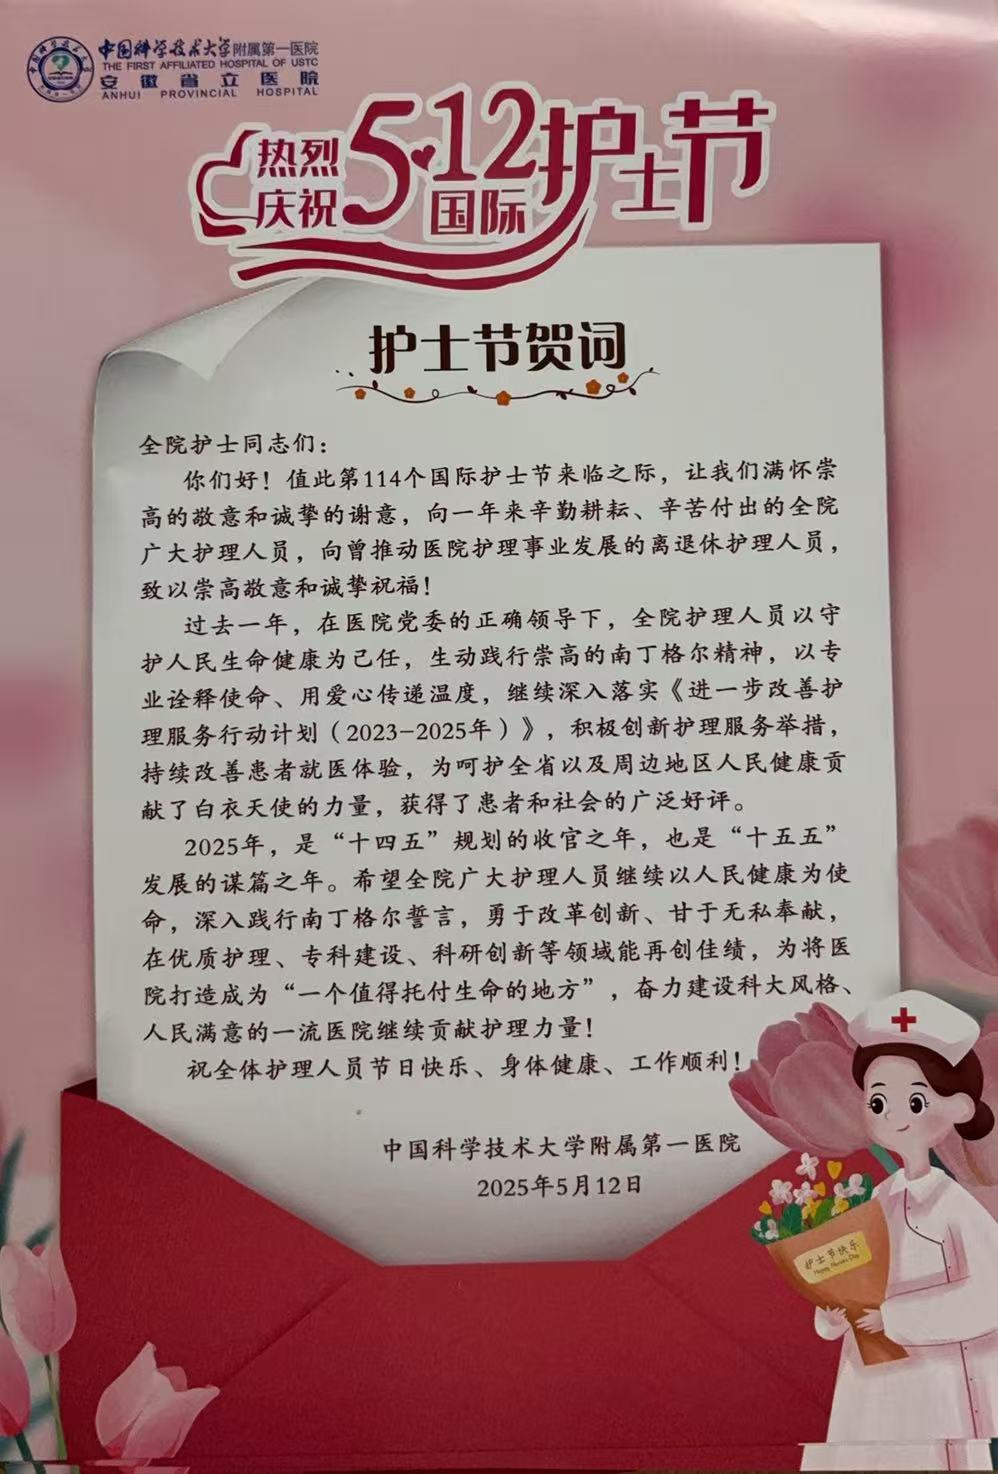 中国科学技术大学附属第一医院
THE FIRST AFFILIATED HOSPITAL OF USTC
安徽省立医院
ANHUI PROVINCIAL HOSPITAL
热烈庆祝5·12国际护士节
护士节贺词
全院护士同志们：
你们好！值此第114个国际护士节来临之际，让我们满怀崇
高的敬意和诚挚的谢意，向一年来辛勤耕耘、辛苦付出的全院
广大护理人员，向曾推动医院护理事业发展的离退休护理人员，
致以崇高敬意和诚挚祝福！
过去一年，在医院党委的正确领导下，全院护理人员以守
护人民生命健康为己任，生动践行崇高的南丁格尔精神，以专
业诠释使命、用爱心传递温度，继续深入落实《进一步改善护
理服务行动计划（2023-2025年）》，积极创新护理服务举措，
持续改善患者就医体验，为呵护全省以及周边地区人民健康贡
献了白衣天使的力量，获得了患者和社会的广泛好评。
2025年，是“十四五”规划的收官之年，也是“十五五”
发展的谋篇之年。希望全院广大护理人员继续以人民健康为使
命，深入践行南丁格尔誓言，勇于改革创新、甘于无私奉献，
在优质护理、专科建设、科研创新等领域能再创佳绩，为将医
院打造成为“一个值得托付生命的地方”，奋力建设科大风格、
人民满意的一流医院继续贡献护理力量！
祝全体护理人员节日快乐、身体健康、工作顺利！
中国科学技术大学附属第一医院
2025年5月12日
护士节快乐
Happy Nurses Day